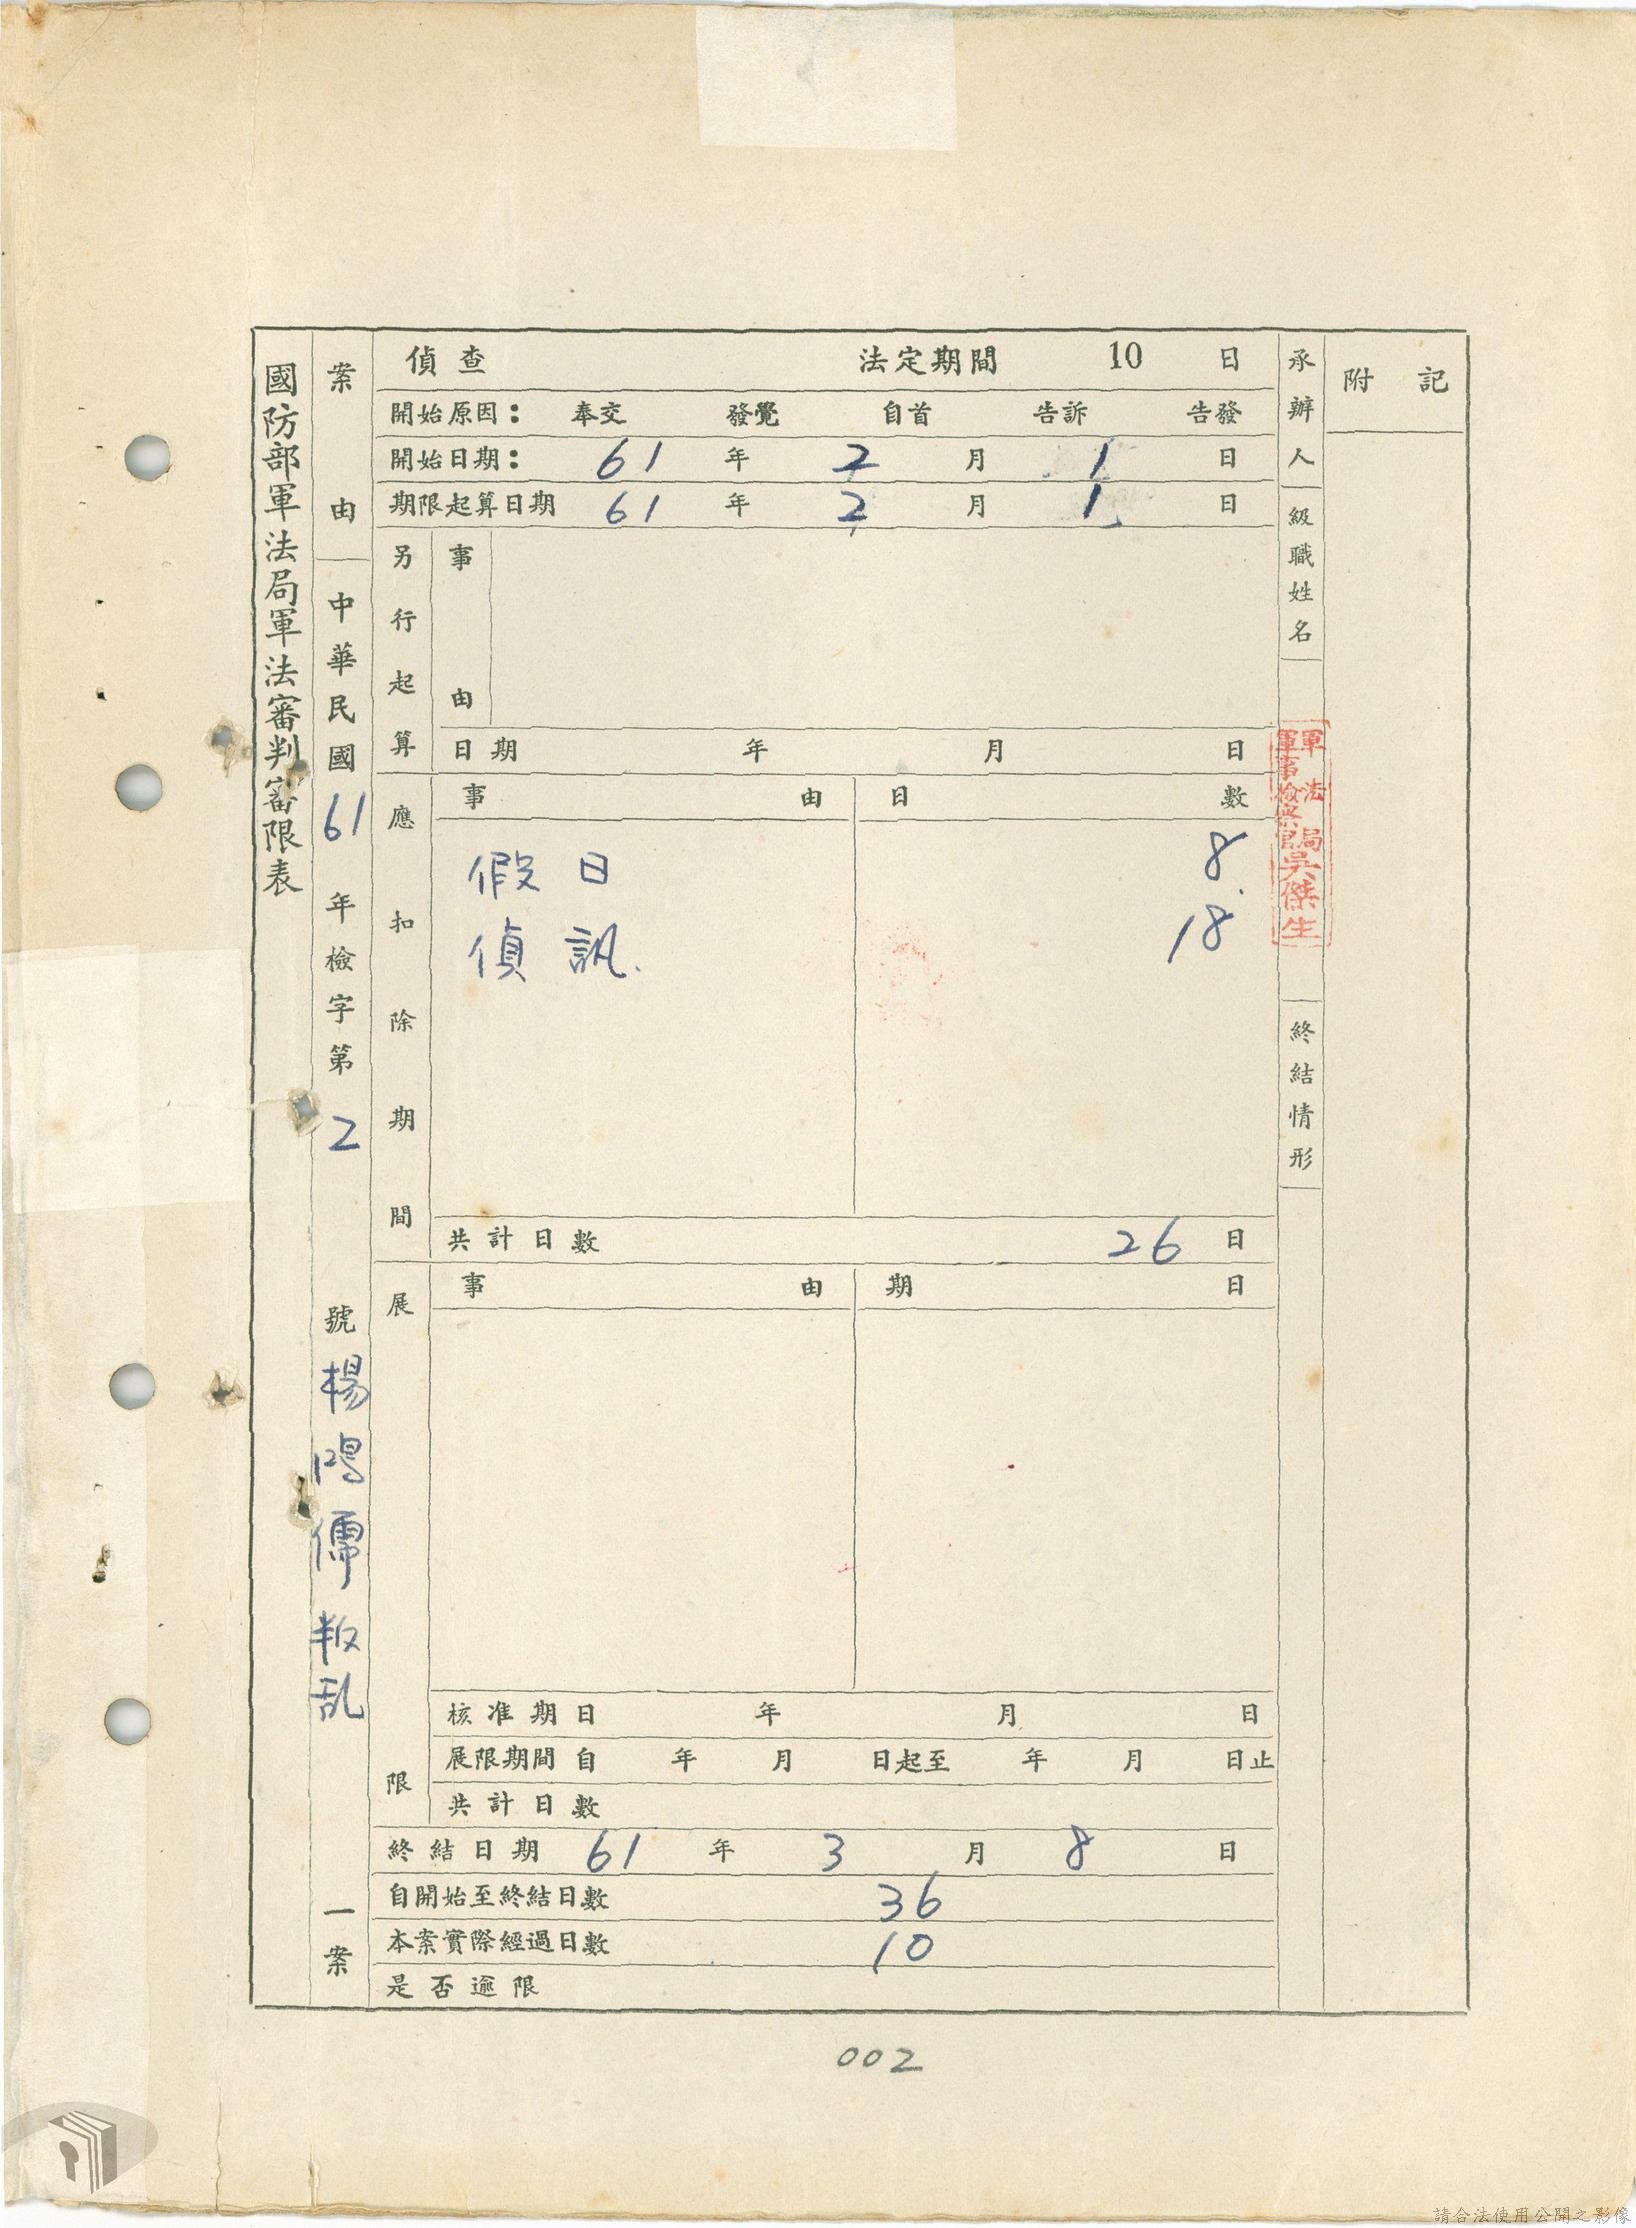 國防部軍法局軍法審判審限表
案由
中華民國61年檢字第2號楊鴻儒叛乱一案
偵查 法定期間 10 日
開始原因： 奉交 發覺 自首 告訴 告發
開始日期： 61 年 2 月 1 日
期限起算日期 61 年 2 月 1 日
另行起算
事由
日期 年 月 日
應扣除期間
事由 日數
假日 8.
偵訊. 18
共計日數 26 日
展限
事由 期日
核准期日 年 月 日
展限期間 自 年 月 日起至 年 月 日止
共計日數
終結日期 61 年 3 月 8 日
自開始至終結日數 36
本案實際經過日數 10
是否逾限
承辦人
級職姓名
軍法局
軍事檢察官吳傑生
終結情形
附記
002
請合法使用公開之影像